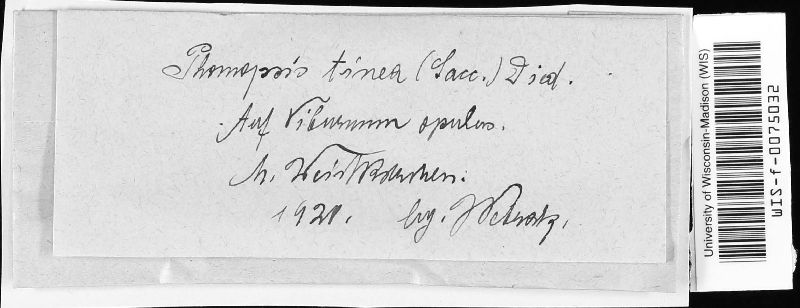 Phomopsis tinea (Sacc.) Died.
Auf Viburnum opulus.
M. Weisskirchen.
1921. leg. Petrak.
University of Wisconsin-Madison (WIS)
WIS-f-0075032